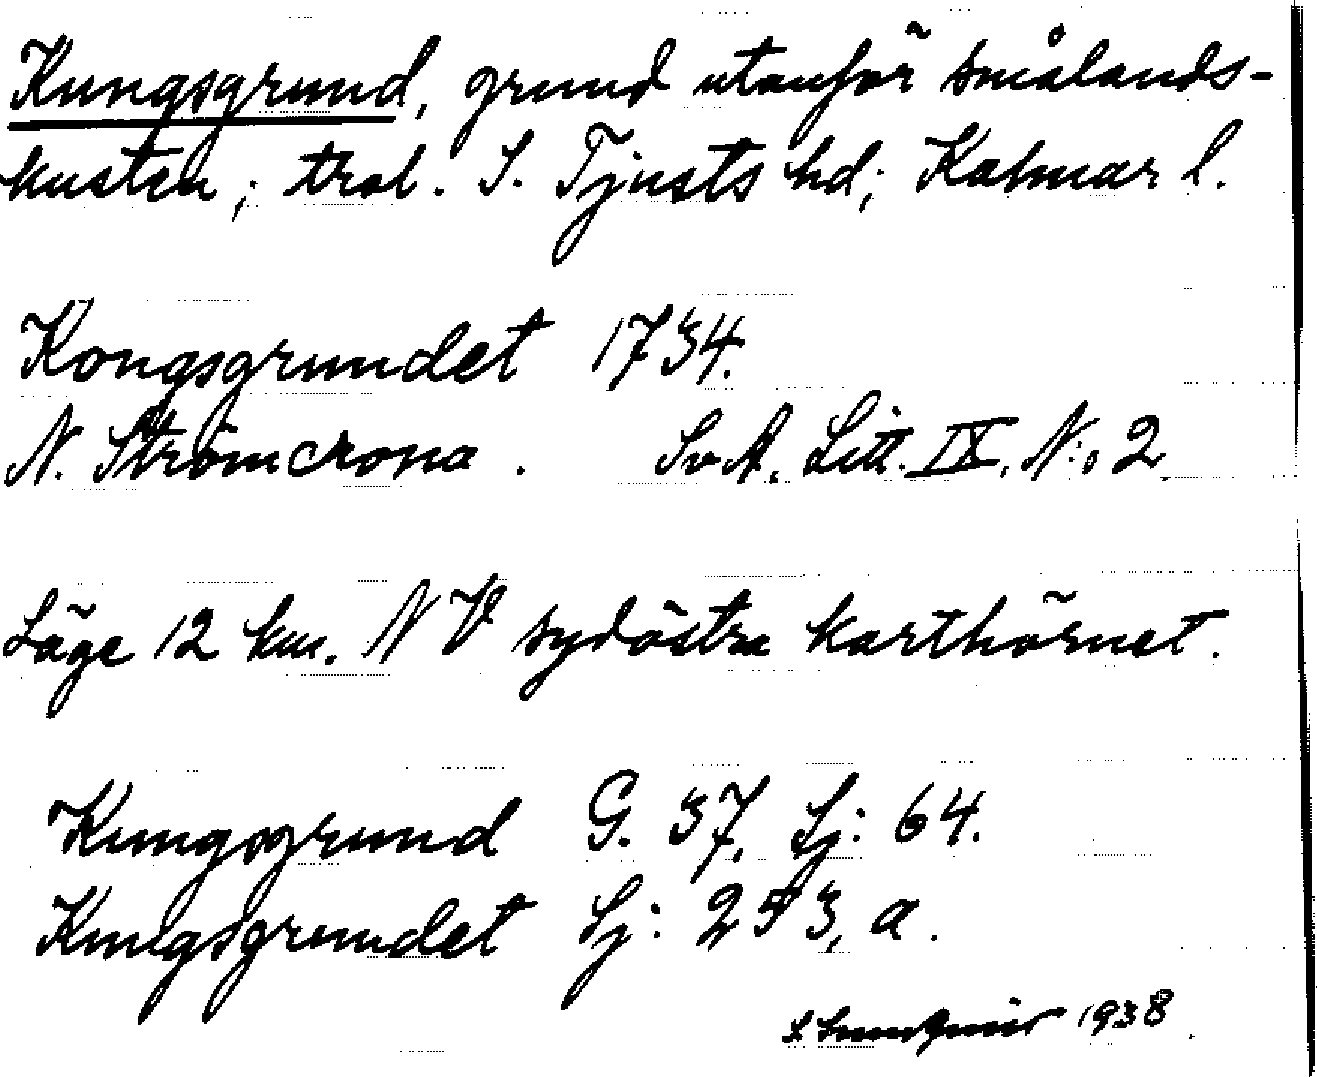 Kungsgrund, grund utanför smålands-
kusten; trol. S. Tjusts hd; Kalmar l.
Kongsgrundet 1734.
N. Strömcrona. SvA. Litt. IX, N:o 2.
Läge 12 km. NV sydöstra karthörnet.
Kungsgrund G. 37, Sj: 64.
Kungsgrundet Sj: 253, a.
1938